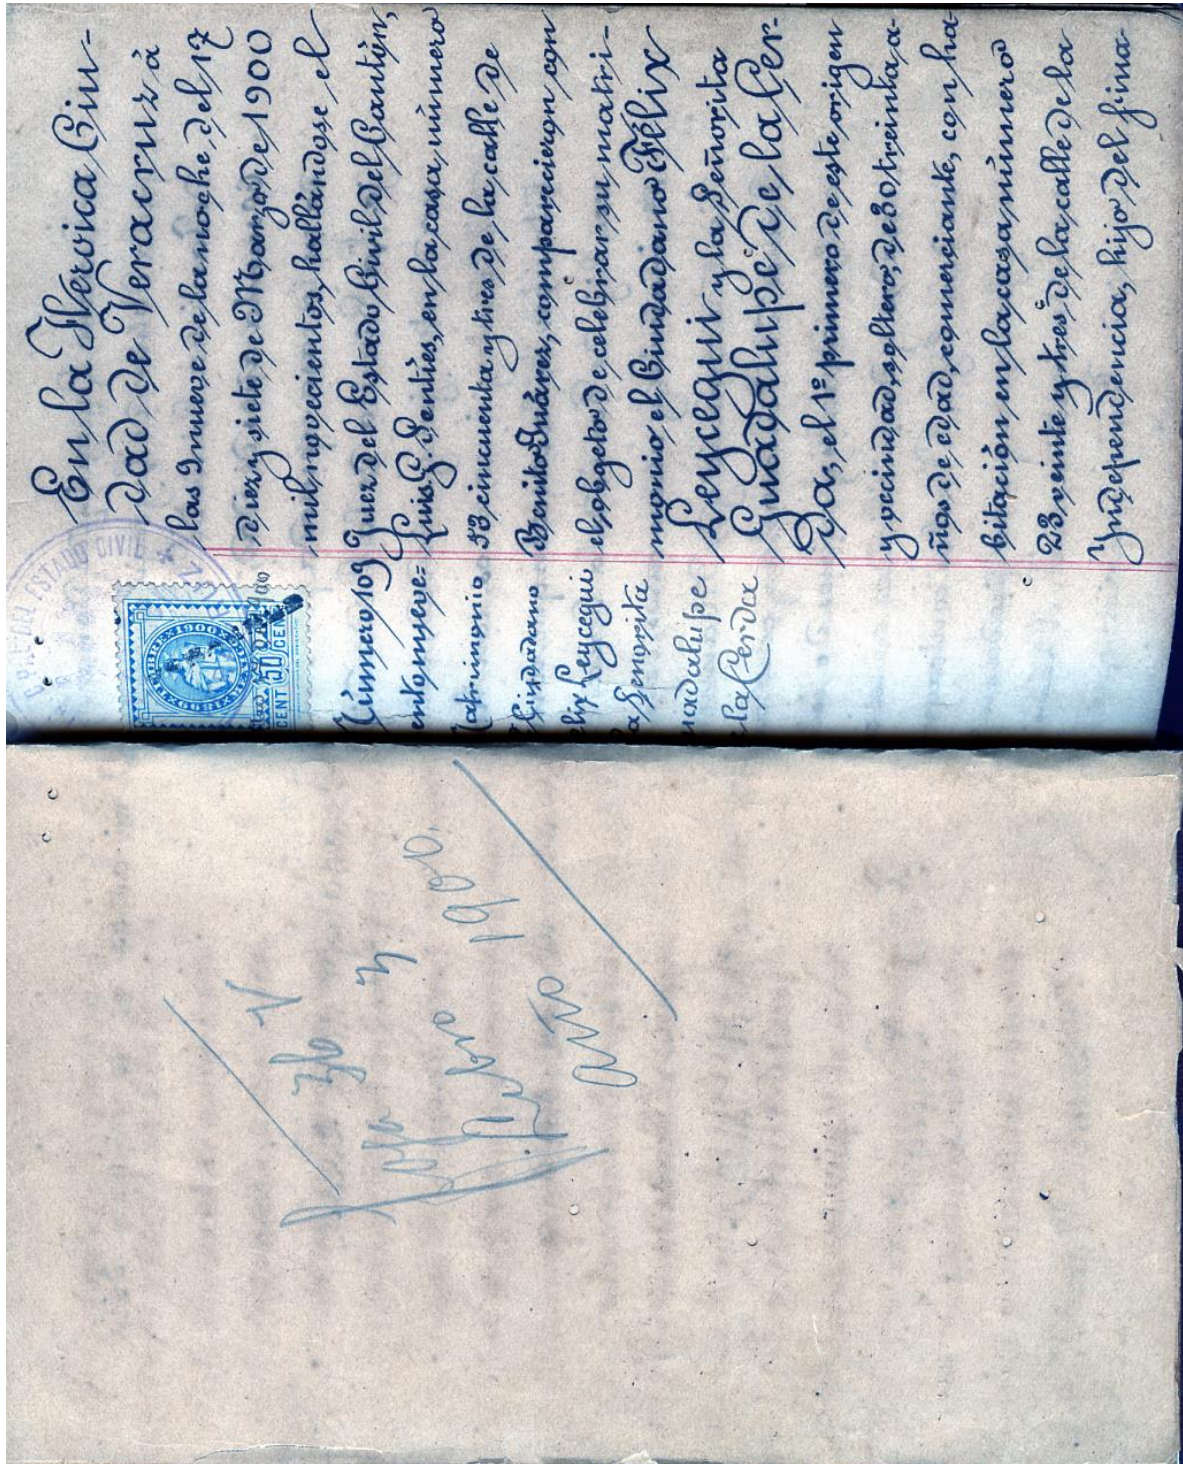 Foja 36 V
y
Libro
Año 1900.
DEL ESTADO CIVIL
1900
CENT 50 CENT
Número 109
ento nueve=
Matrimonio
Ciudadano
elix Leycegui
a Señorita
uadalupe
e la Cerda
En la Heroica Ciu-
dad de Veracruz á
las 9 nueve de la noche, del 17
diez y siete de Marzo de 1900
mil novecientos, hallándose el
Juez del Estado Civil del Cantón,
Luis G. Sentíes, en la casa número
53 cincuenta y tres de la calle de
Benito Juárez, comparecieron con
el obgeto de celebrar su matri-
monio el Ciudadano Félix
Leycegui y la Señorita
Guadalupe de la Cer-
da, el 1º primero de este origen
y vecindad, soltero, de 30 treinta, a-
ños de edad, comerciante, con ha-
bitación en la casa número
23 veinte y tres de la calle de la
Independencia, hijo del fina-